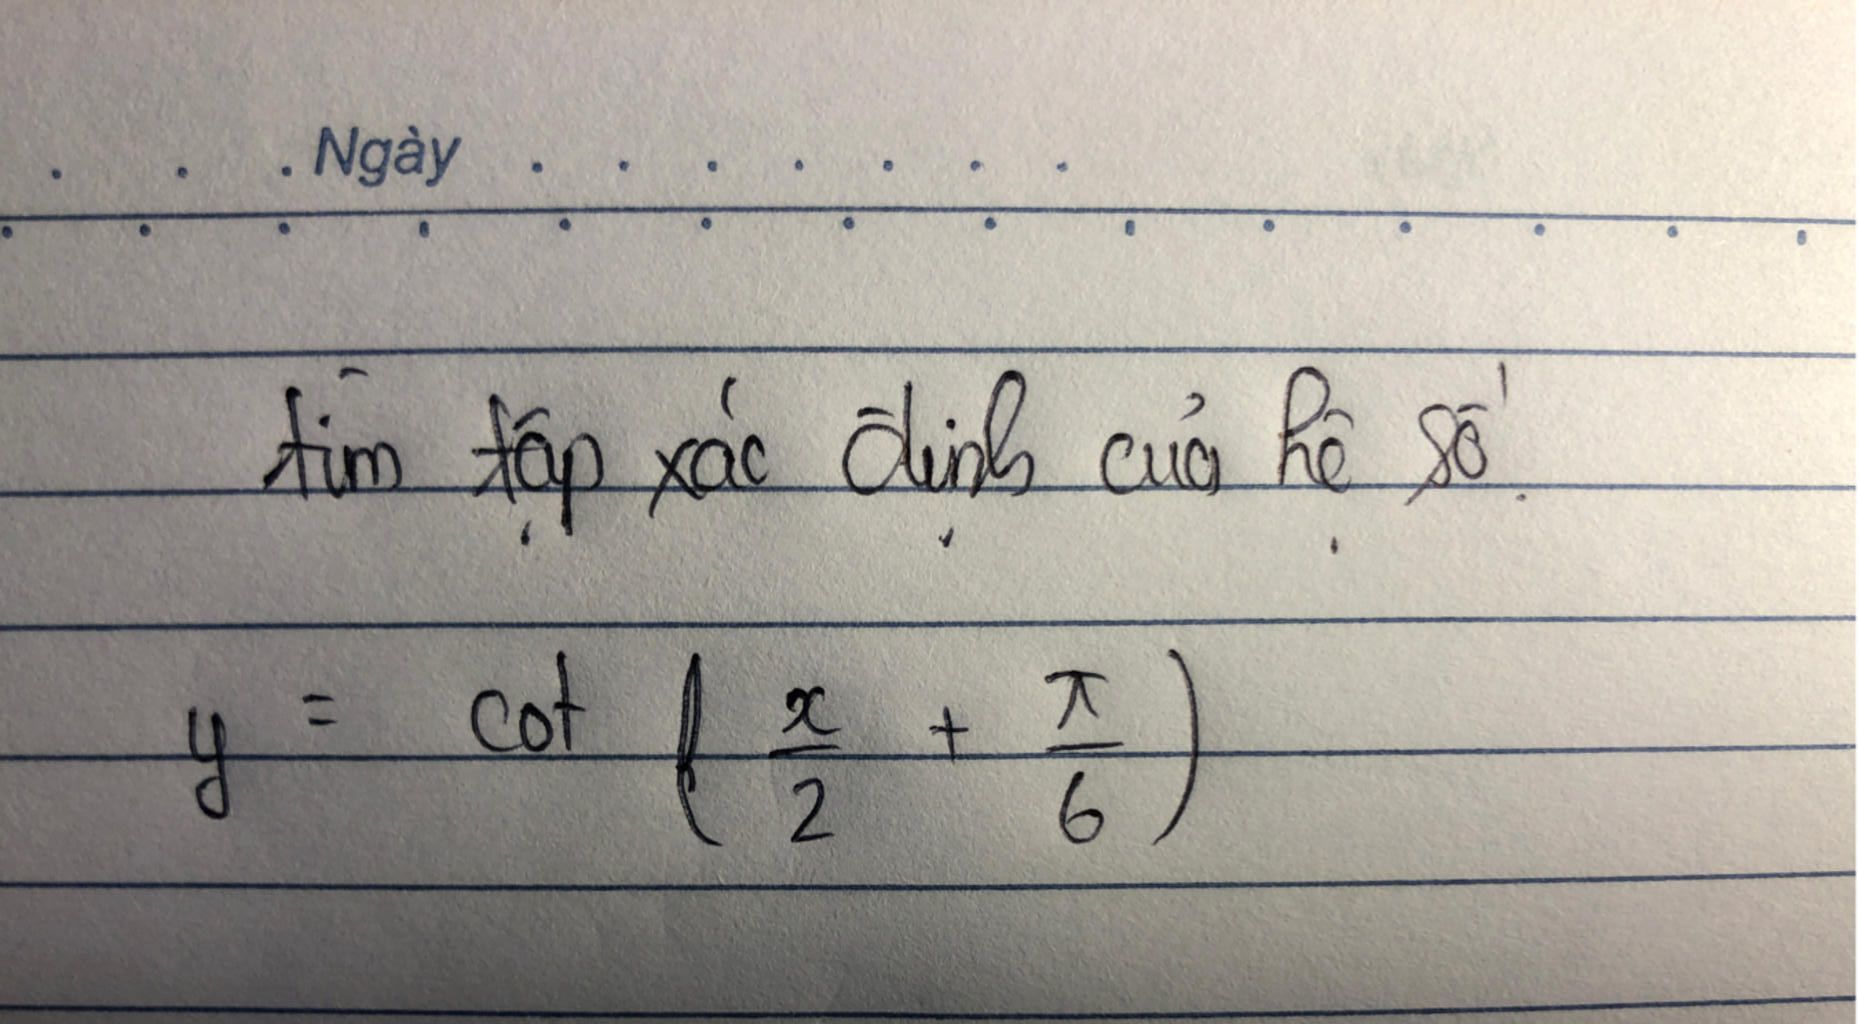 Ngày
tìm tập xác định của hệ số.
y = cot ( x/2 + π/6 )